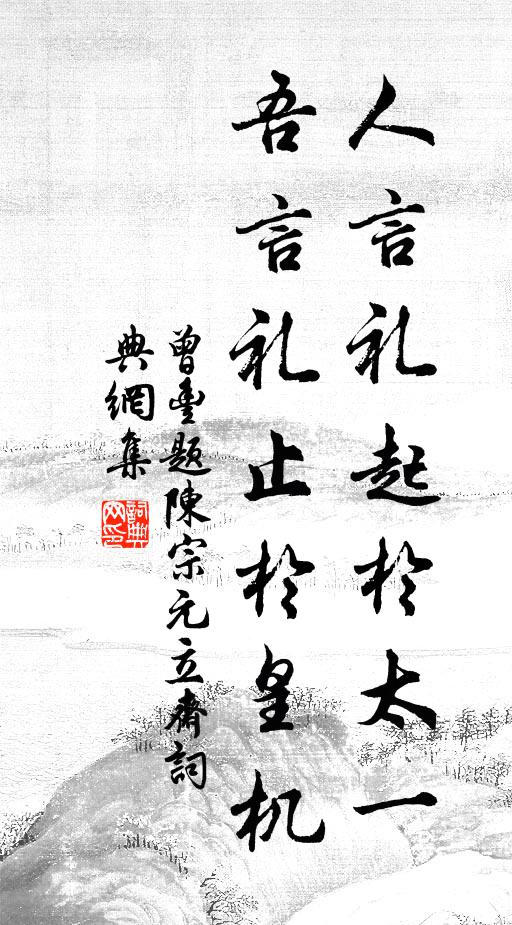 人言礼起於太一
吾言礼止於皇机
曾豐题陳宗元立齋詞
典網集
詞典網印